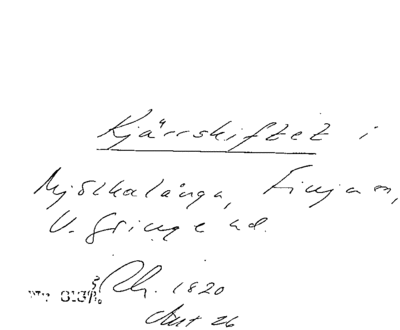 Kjärrskiftet i
Mjölkalånga, Finja sn,
V. Göinge hd.
1820
Akt 26